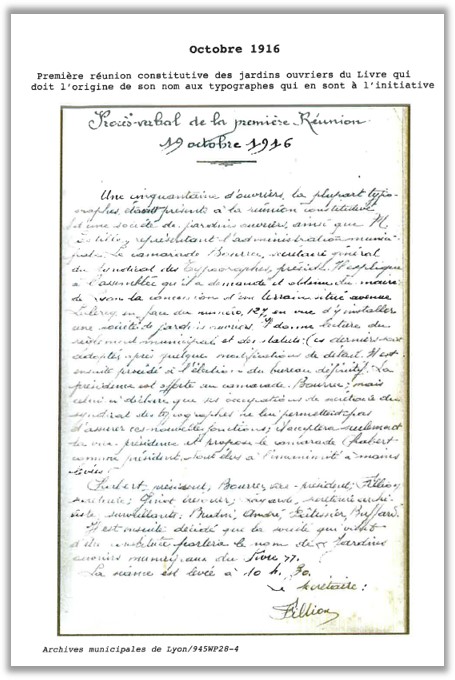 Octobre 1916
Première réunion constitutive des jardins ouvriers du Livre qui
doit l'origine de son nom aux typographes qui en sont à l'initiative
Procès-verbal de la première Réunion
19 octobre 1916
Une cinquantaine d'ouvriers, la plupart typo-
graphes, étaient présents à la réunion constitutive
d'une société de jardins ouvriers, ainsi que M.
représentant l'administration munici-
pale. Le camarade Bourre, secrétaire général
du Syndicat des Typographes, préside. Il explique
à l'assemblée qu'il a demandé et obtenu du maire
de Lyon la concession d'un terrain situé avenue
Leclerc, en face du numéro 127, en vue d'y installer
une société de jardins ouvriers. Il donne lecture du
règlement municipal et des statuts. Ces derniers sont
adoptés après quelques modifications de détail. Il est
ensuite procédé à l'élection du bureau définitif. La
présidence est offerte au camarade Bourre; mais
celui-ci déclare que ses occupations de secrétaire du
syndicat des typographes ne lui permettent pas
d'assurer ces nouvelles fonctions; il acceptera seulement
la vice-présidence et propose le camarade Chabert
comme président. Sont élus à l'unanimité à mains
levées:
Chabert, président; Bourre, vice-président; Fillion,
secrétaire; trésorier;
surveillants:
Il est ensuite décidé que la société qui vient
d'être constituée portera le nom de « Jardins
ouvriers municipaux du Livre ».
La séance est levée à 10 h. 30.
Le secrétaire:
Fillion
Archives municipales de Lyon/945WP28-4